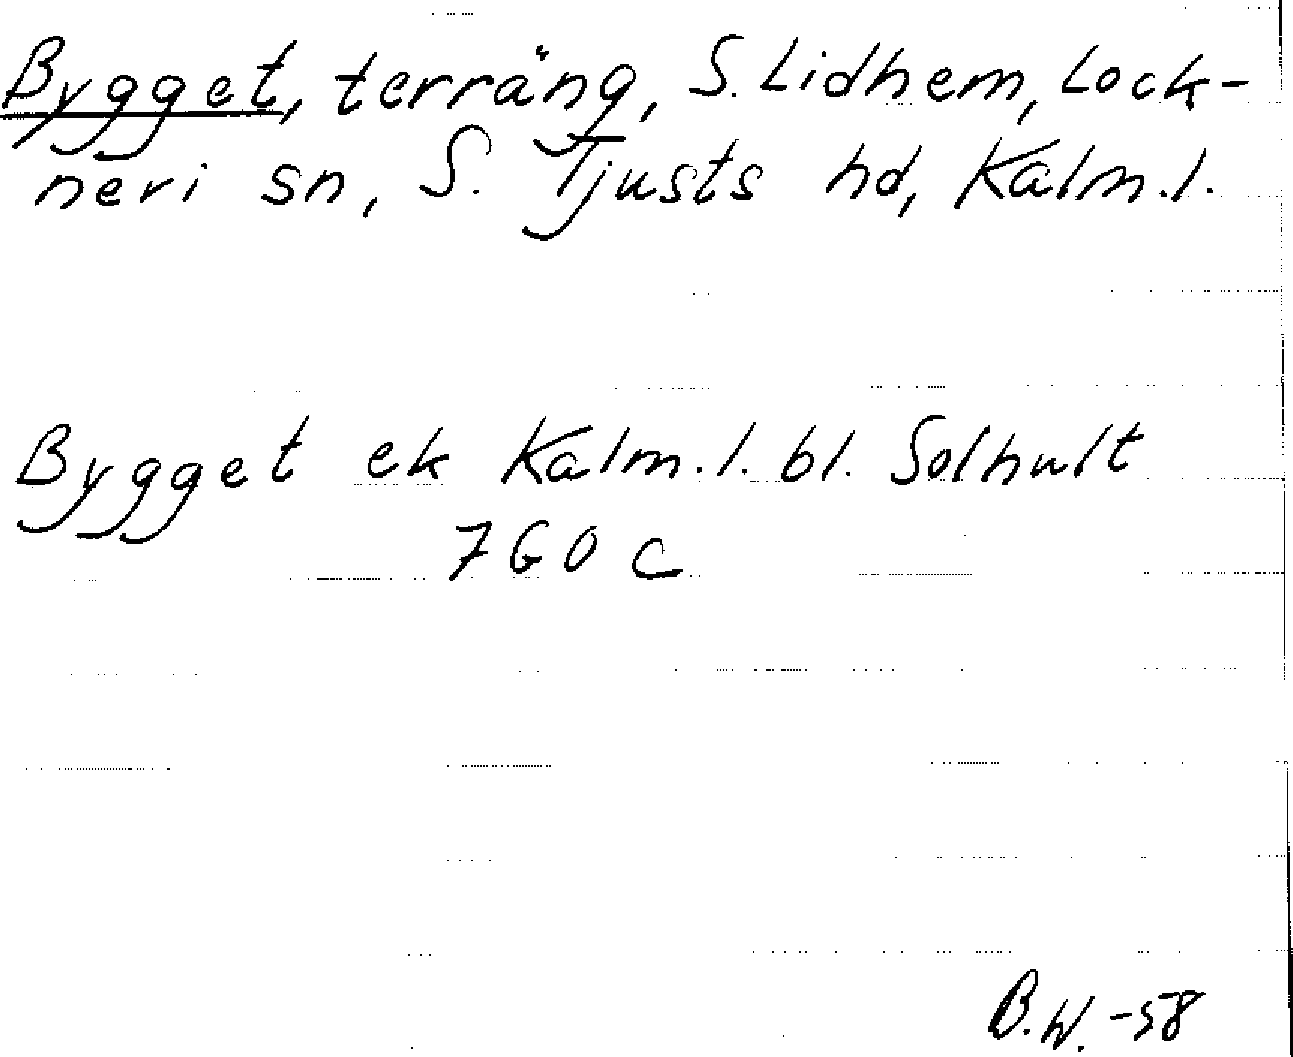 Bygget, terräng, S. Lidhem, Lock-
neri sn, S. Tjusts hd, Kalm.l.
Bygget ek Kalm.l. bl. Solhult
760 c
B.W. -58